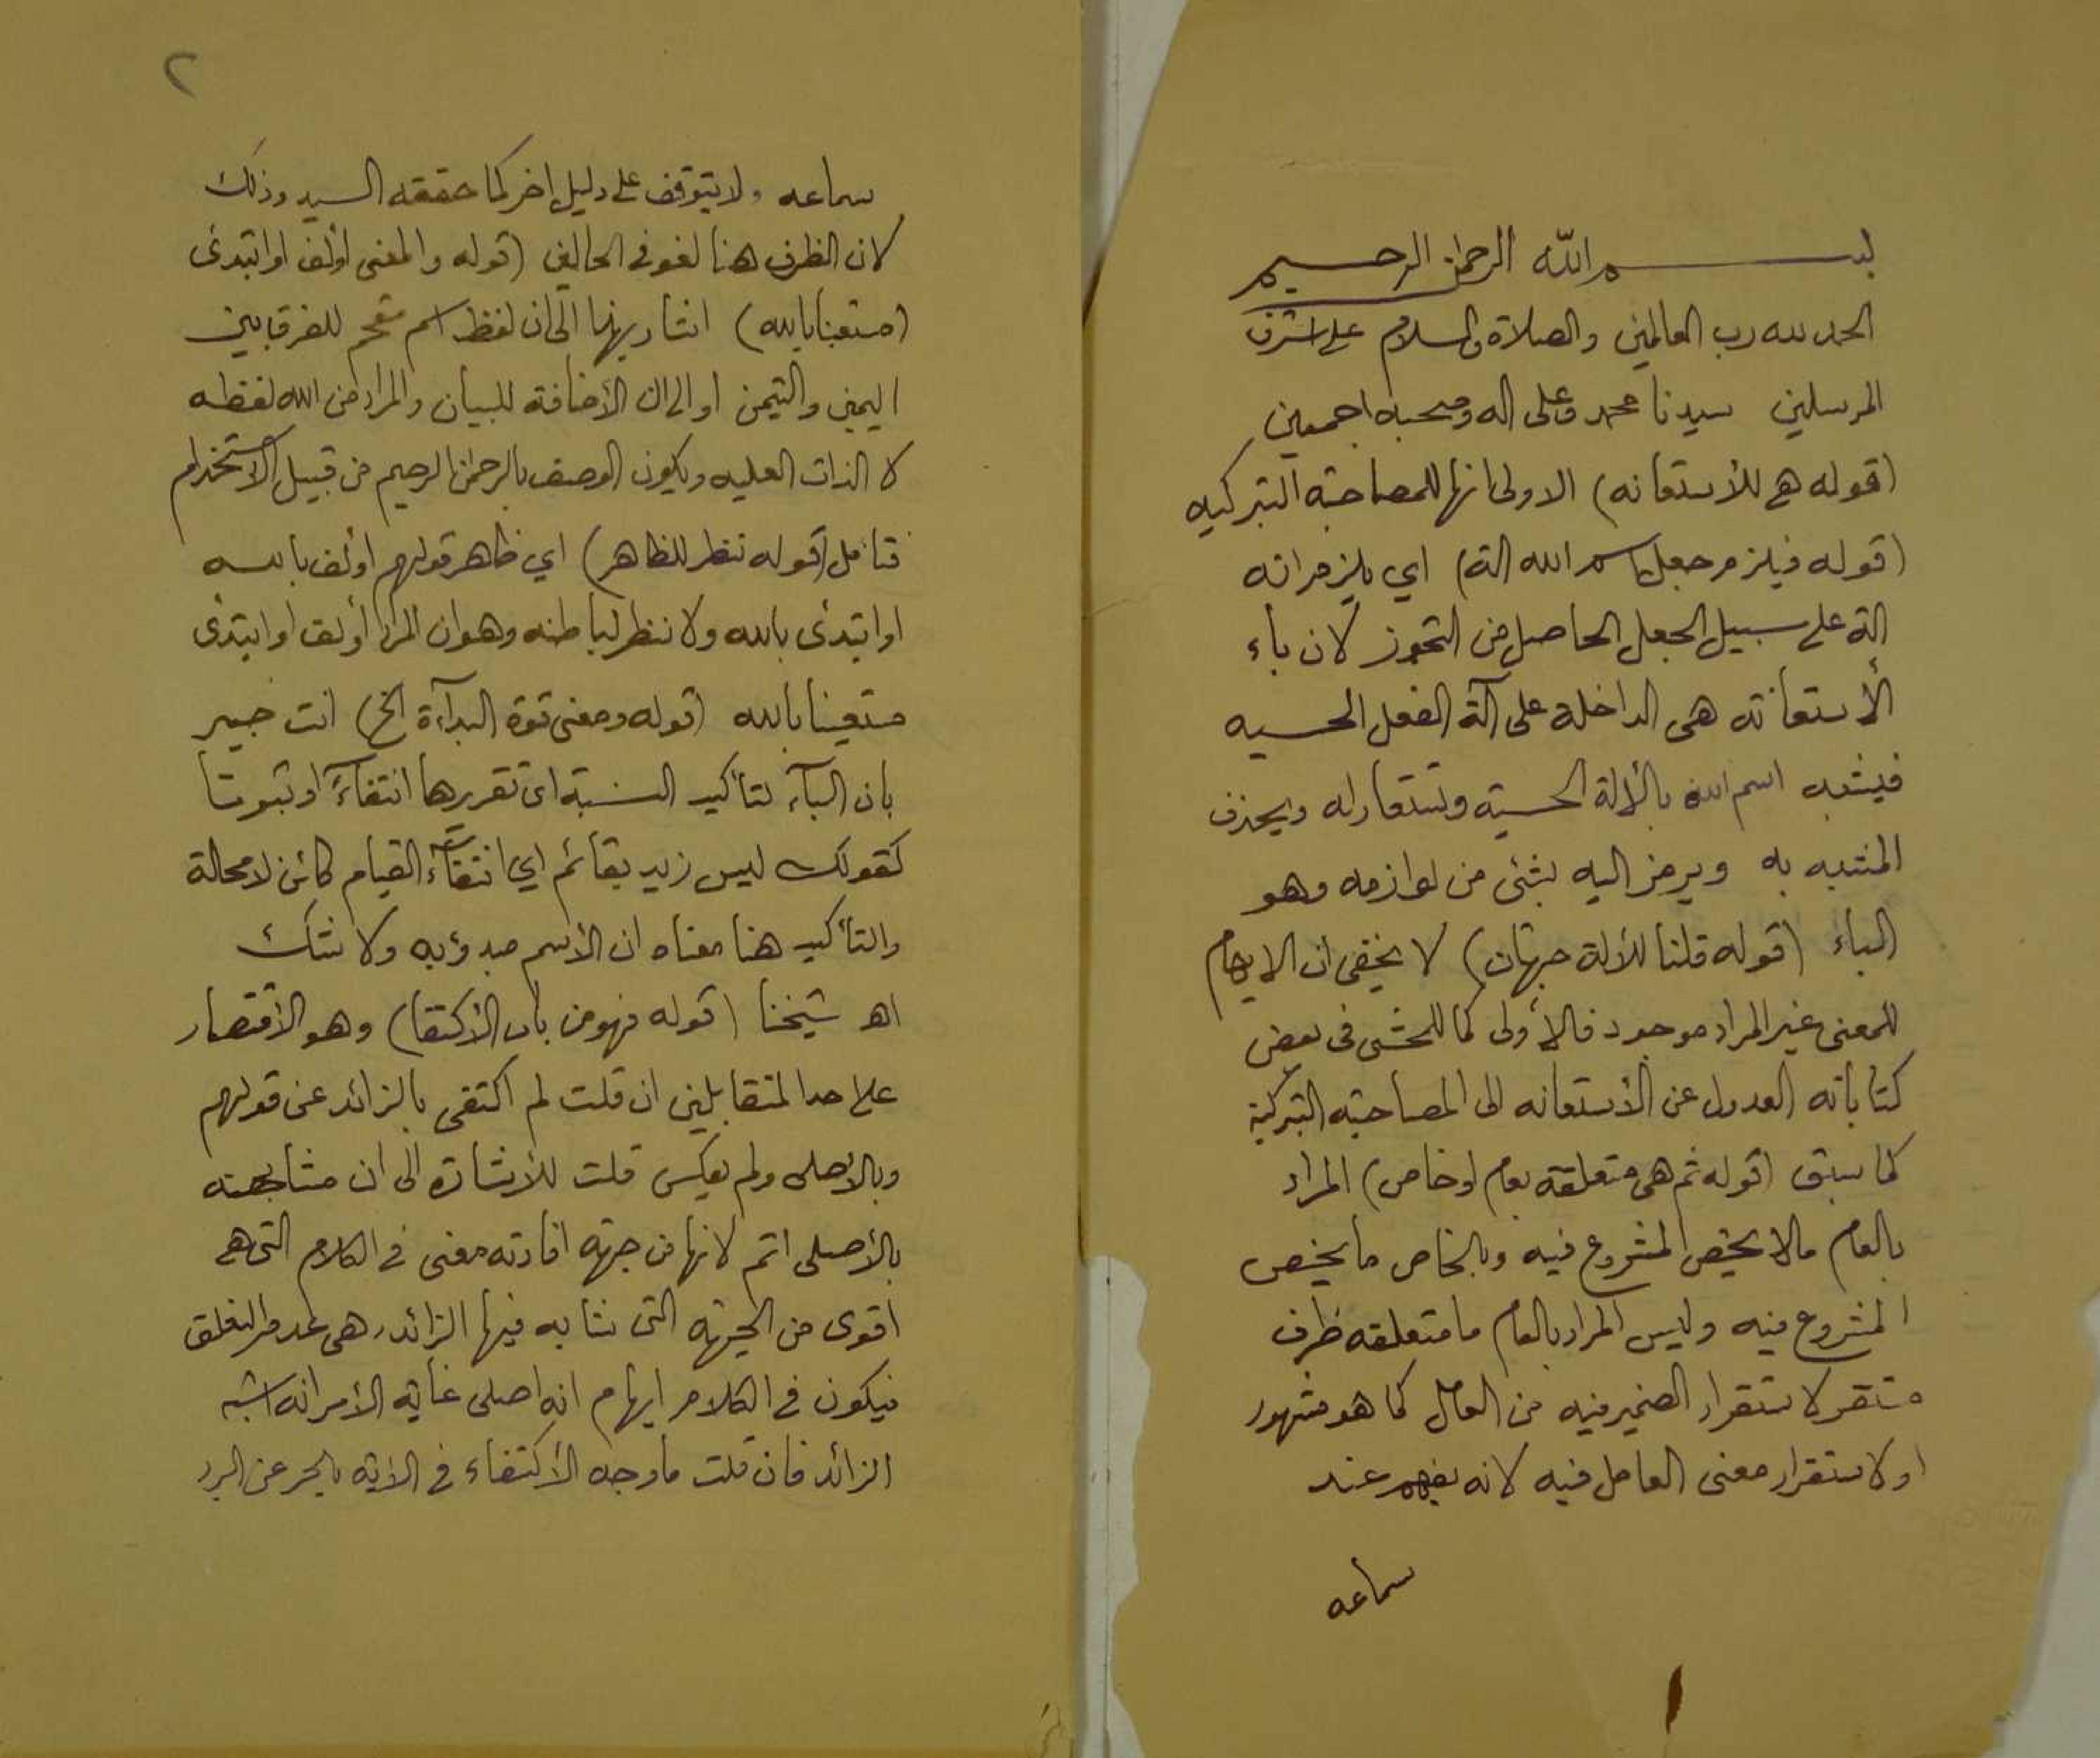 بسم الله الرحمن الرحيم
الحمد لله رب العالمين والصلاة والسلام على اشرف
المرسلين سيدنا محمد وعلى اله وصحبه اجمعين
(قوله هى للأستعانه) الاولى انها للمصاحبة التبركيه
(قوله فيلزم جعل اسم الله الة) اي يلزم انه
الة على سبيل الجعل الحاصل من التجوز لان باء
الأستعانه هى الداخلة على آلة الفعل الحسيه
فيشبه اسم الله بالألة الحسية وتستعار له ويحذف
المشبه به ويرمز اليه بشئى من لوازمه وهو
الباء (قوله قلنا للألة جهتان) لا يخفى ان الايهام
للمعنى غير المراد موجود فالأولى كما للمحشى فى بعض
كتاباته العدول عن الأستعانه الى المصاحبة التبركية
كما سبق (قوله ثم هى متعلقة بعام او خاص) المراد
بالعام مالا يخص المشروع فيه وبالخاص ما يخص
المشروع فيه وليس المراد بالعام ما متعلقه ظرف
مستقر لاستقرار الضمير فيه من العامل كما هو مشهور
او لاستقرار معنى العامل فيه لانه يفهم عند
سماعه
١
٢
سماعه ولا يتوقف على دليل اخر كما حققه السيد وذلك
لان الظرف هنا لغو فى الحالين (قوله والمعنى أؤلف او ابتدئى
(مستعينا بالله) اشار بهذا الى ان لفظ اسم مقحم للفرق بين
اليمين والتيمن او الى ان الأضافة للبيان والمراد من الله لفظه
لا الذات العليه ويكون الوصف بالرحمن الرحيم من قبيل الاستخدام
فتامل (قوله نظر للظاهر) اي ظاهر قولهم أؤلف بالله
او ابتدئى بالله ولا ننظر لباطنه وهو ان المراد أولف او ابتدئى
مستعينا بالله (قوله ومعنى قوة البدآءة الخ) انت خبير
بان البآء لتأكيد النسبة اى تقريرها انتفآءً او ثبوتا
كقولك ليس زيد بقائم اي انتفآء القيام كائن لا محالة
والتأكيد هنا معناه ان الأسم مبدؤ به ولا شك
اهـ شيخنا (قوله فهو من باب الأكتفا) وهو الأقتصار
على احد المتقابلين ان قلت لم اكتفى بالزائد عن قولهم
وبالاصلى ولم يعكس قلت للأشارة الى ان مشابهته
بالأصلى اتم لانها من جهة افادته معنى فى الكلام التى هى
اقوى من الجهة التى شابه فيها الزائد وهى عدم التعلق
فيكون فى الكلام ايهام انه اصلى غاية الأمر انه اشبه
الزائد فان قلت ما وجه الأكتفاء فى الاية بالحر عن البرد